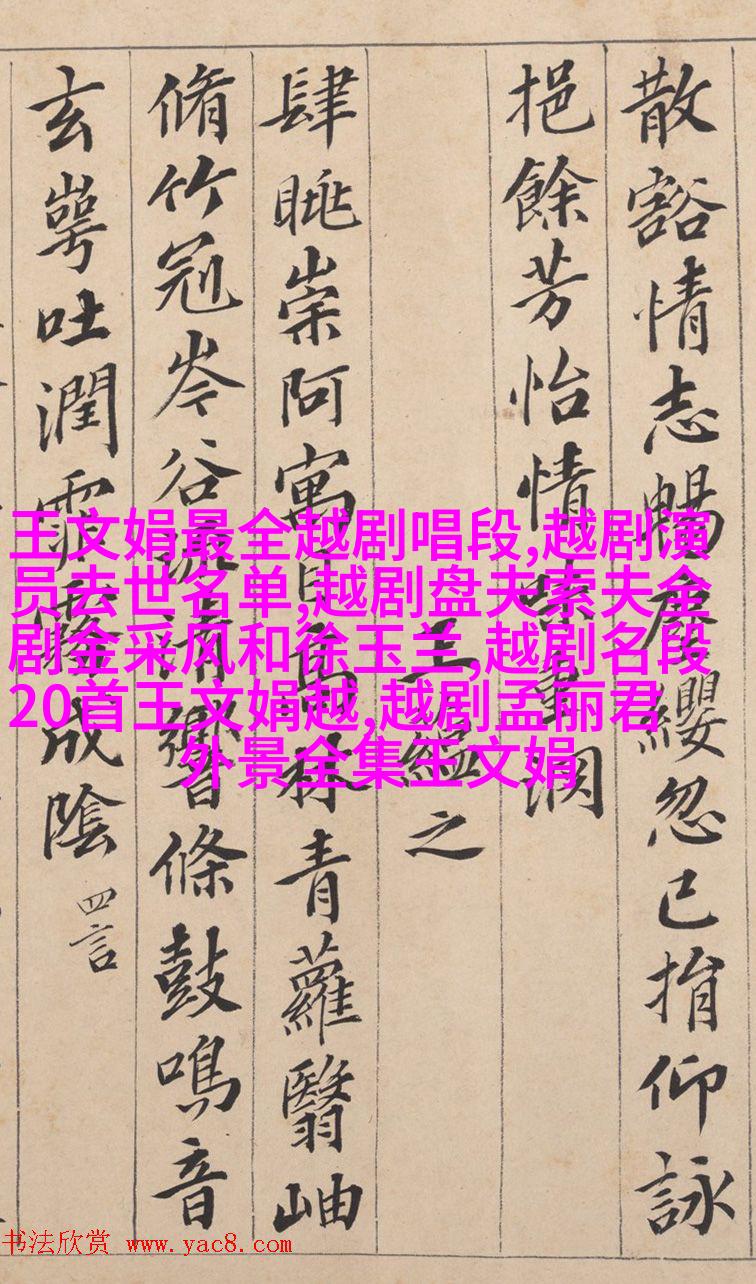 散豁情志暢塵纓忽已捐仰詠
挹餘芳怡情味重淵
王蘊之
肆眺崇阿寓目高林青蘿翳岫
脩竹冠岑谷流清響條鼓鳴音
玄崿吐潤霏霧成陰 四言
王文娟最全越剧唱段,越剧演
员去世名单,越剧盘夫索夫全
剧金采风和徐玉兰,越剧名段
20首王文娟越,越剧孟丽君
外景全集王文娟
书法欣赏 www.yac8.com